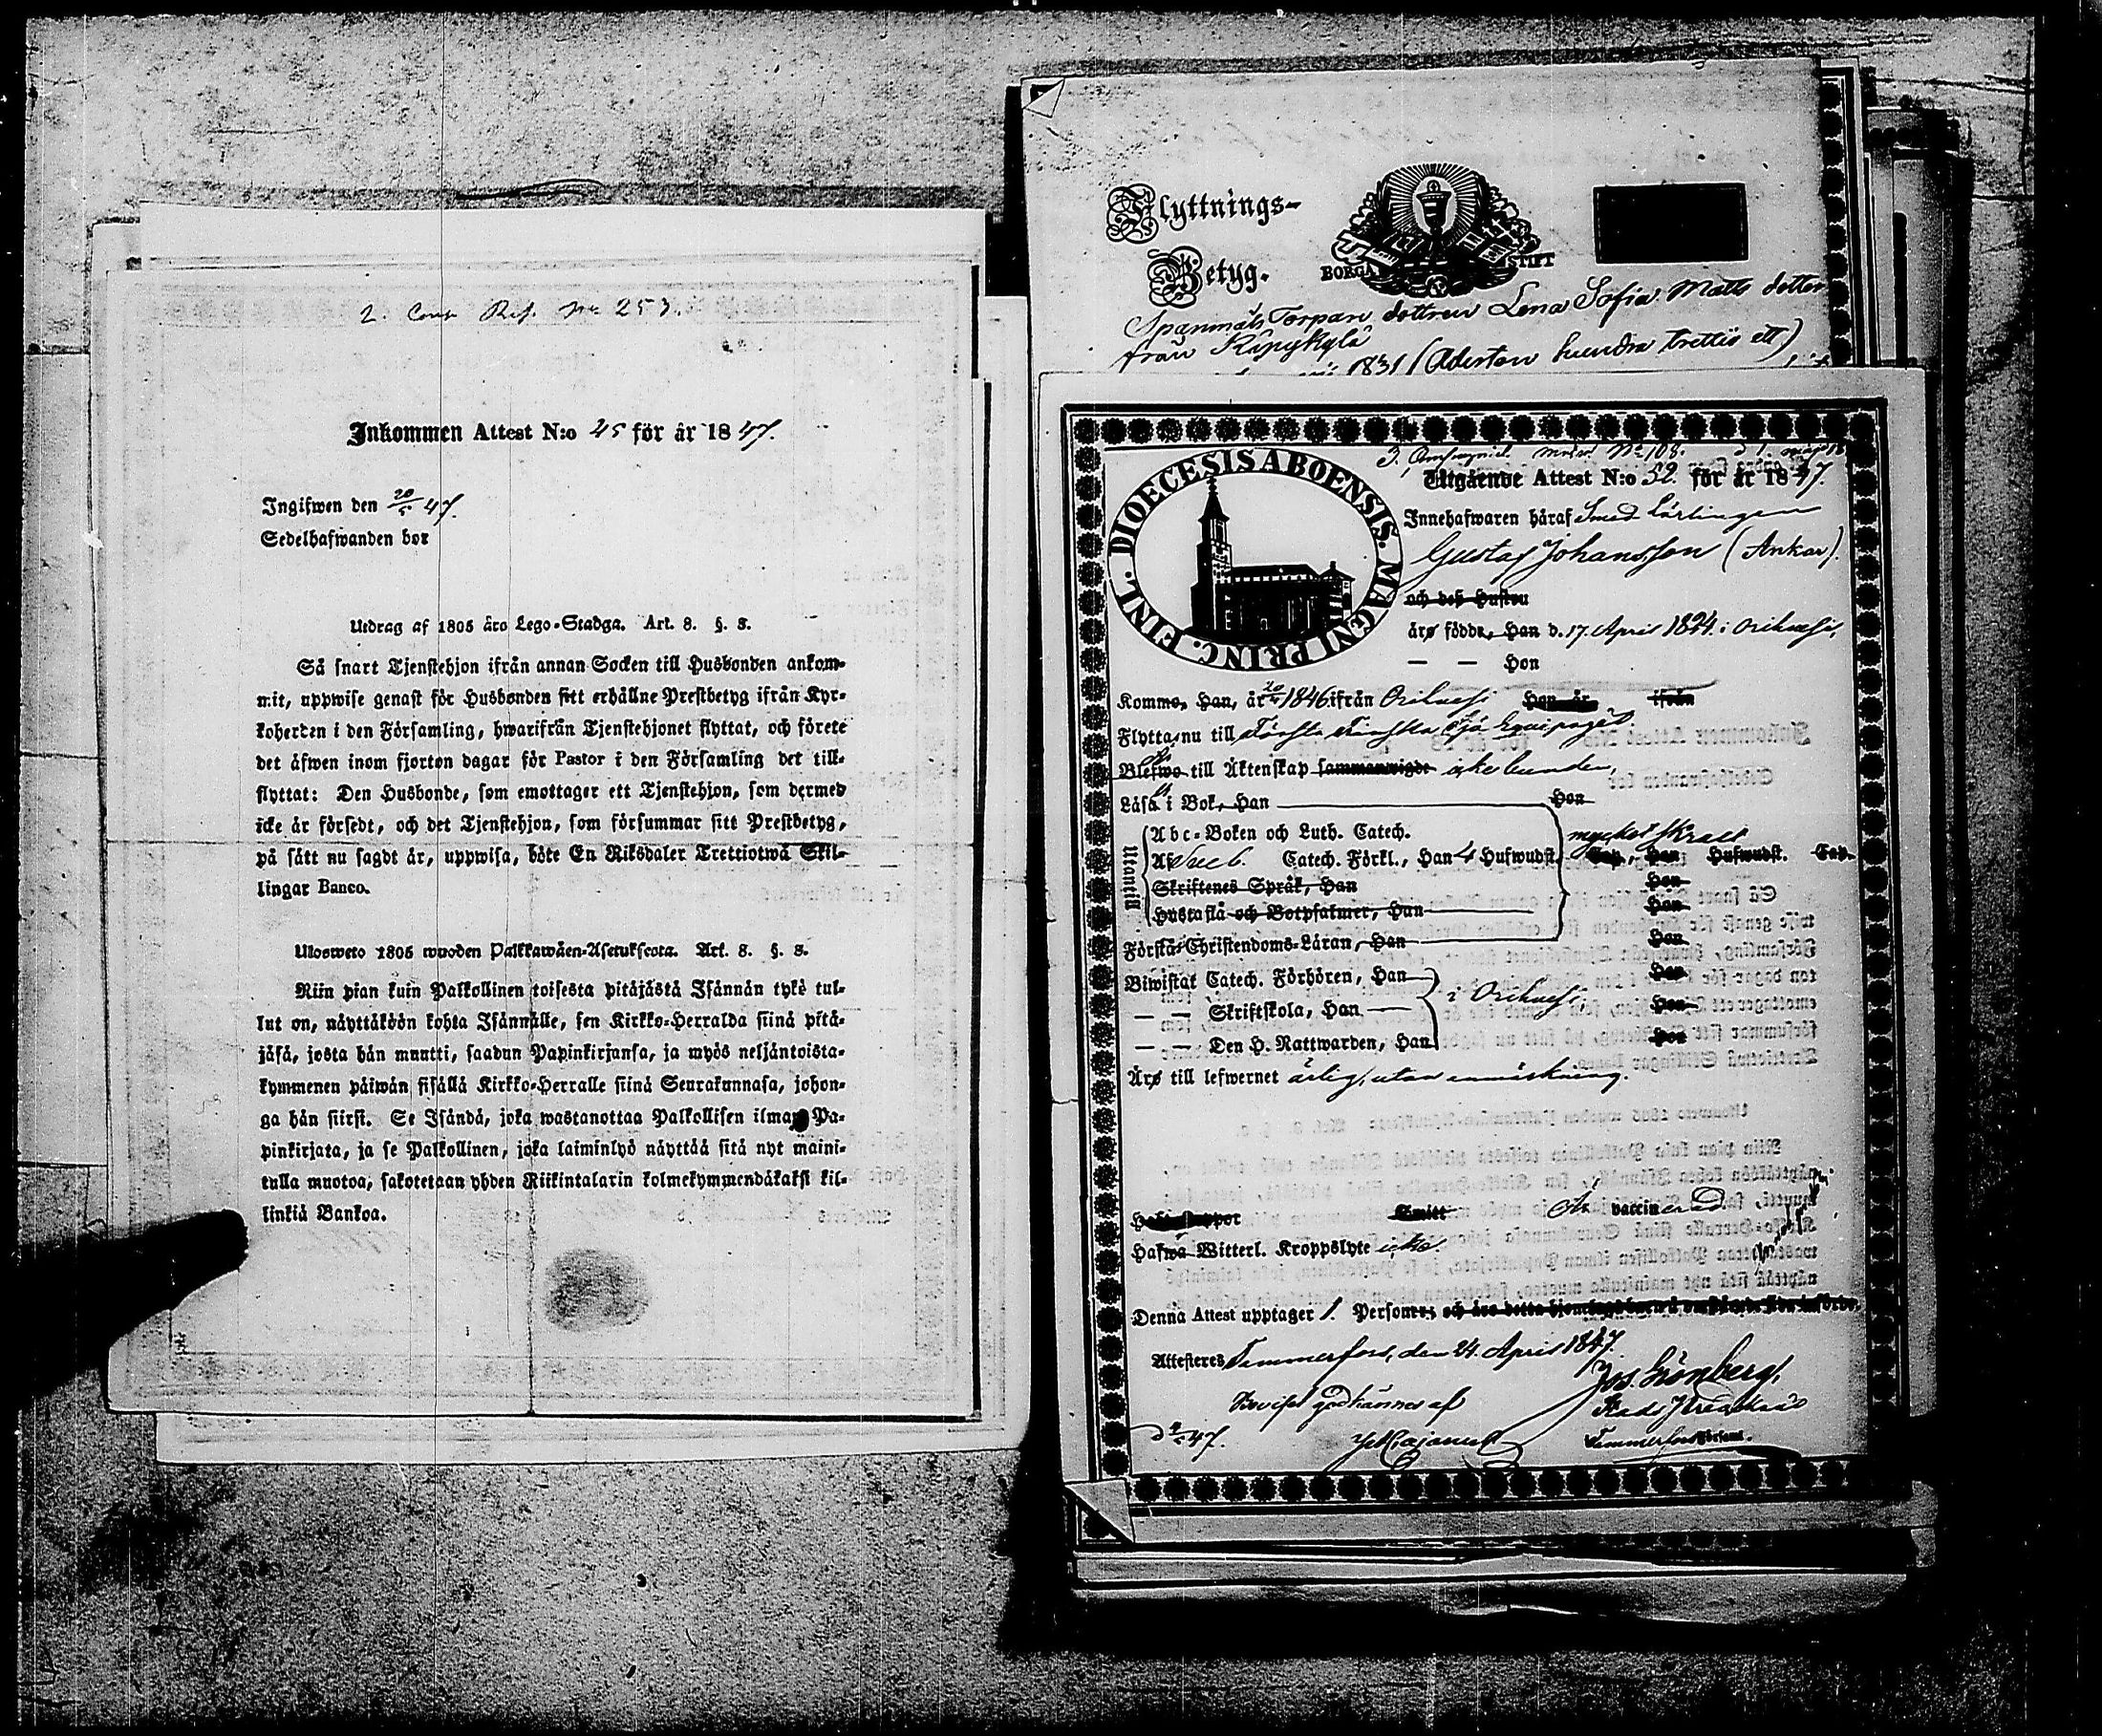 2. Comp Ref. No 253.
Inkommen Attest N:o 45 för år 1847.
Ingifwen den 20/5 47.
Sedelhafwanden bor
Utdrag af 1805 års Lego-Stadga. Art. 8. §. 8.
Så snart Tjenstehjon ifrån annan Socken till Husbonden ankom-
mit, uppwise genast för Husbonden sitt erhållne Prestbetyg ifrån Kyr-
koherden i den Församling, hwarifrån Tjenstehjonet flyttat, och förete
det äfwen inom fjorton dagar för Pastor i den Församling det till-
flyttat: Den Husbonde, som emottager ett Tjenstehjon, som dermed
icke är försedt, och det Tjenstehjon, som försummar sitt Prestbetyg,
på sätt nu sagdt är, uppwisa, böte En Riksdaler Trettiotwå Skil-
lingar Banco.
Ulosweto 1805 wuoden Palkkawäen-Asetuksesta. Art. 8. §. 8.
Niin pian kuin Palkollinen toisesta pitäjästä Isännän tykö tul-
lut on, näyttäköön kohta Isännälle, sen Kirkko-Herralda siinä pitä-
jäsä, josta hän muutti, saadun Papinkirjansa, ja myös neljäntoista-
kymmenen päiwän sisällä Kirkko-Herralle siinä Seurakunnasa, johon-
ga hän siirsi. Se Isändä, joka wastanottaa Palkollisen ilman Pa-
pinkirjata, ja se Palkollinen, joka laiminlyö näyttää sitä nyt maini-
tulla muotoa, sakotetaan yhden Riikintalarin kolmekymmendäkaksi kil-
linkiä Bankoa.
Flyttnings-
Betyg.
BORGÅ STIFT
Spanmåls Torpare dottren Lena Sofia Matts dotter
från Käpykylä
1831 (Aderton hundra trettio ett)
DIOECESIS ABOENSIS. MAGNI PRINC. FINL.
3. No 108.
Utgående Attest N:o 52. för år 1847.
Innehafwaren häraf Smed Lärlingen
Gustaf Johansson (Ankar).
och deß Hustru
äro födde, Han d. 17. April 1824. i Orihvesi,
— — Hon
Kommo, Han, år 20/4 1846. ifrån Orihvesi Hon år ifrån
Flytta nu till Första Finska Sjö Equipaget.
Blefwo till Äktenskap sammanwigde icke bunden,
Läsa i Bok, Han Hon
Utantill
Abc-Boken och Luth. Catech.
Af Sveb. Catech. Förkl., Han 4 Hufwudst. Cap., Hon Hufwudst. Cap.
mycket skralt
Skriftenes Språk, Han Hon
Hustafla och Botpsalmer, Han Hon
Förstå Christendoms-Läran, Han Hon
Biwistat Catech. Förhören, Han Hon
i Orihvesi
— — Skriftskola, Han Hon
— — Den H. Nattwarden, Han Hon
Äro till lefwernet ärlig, utan anmärkning.
Haft Koppor Smitt Är vaccinerad.
Hafwa Witterl. Kroppslyte icke.
Denna Attest upptager 1. Personer;
Attesteres Tammerfors, den 24. April 1847.
Jos. Grönberg,
Beviset godkännes af
Tammerfors Församl.